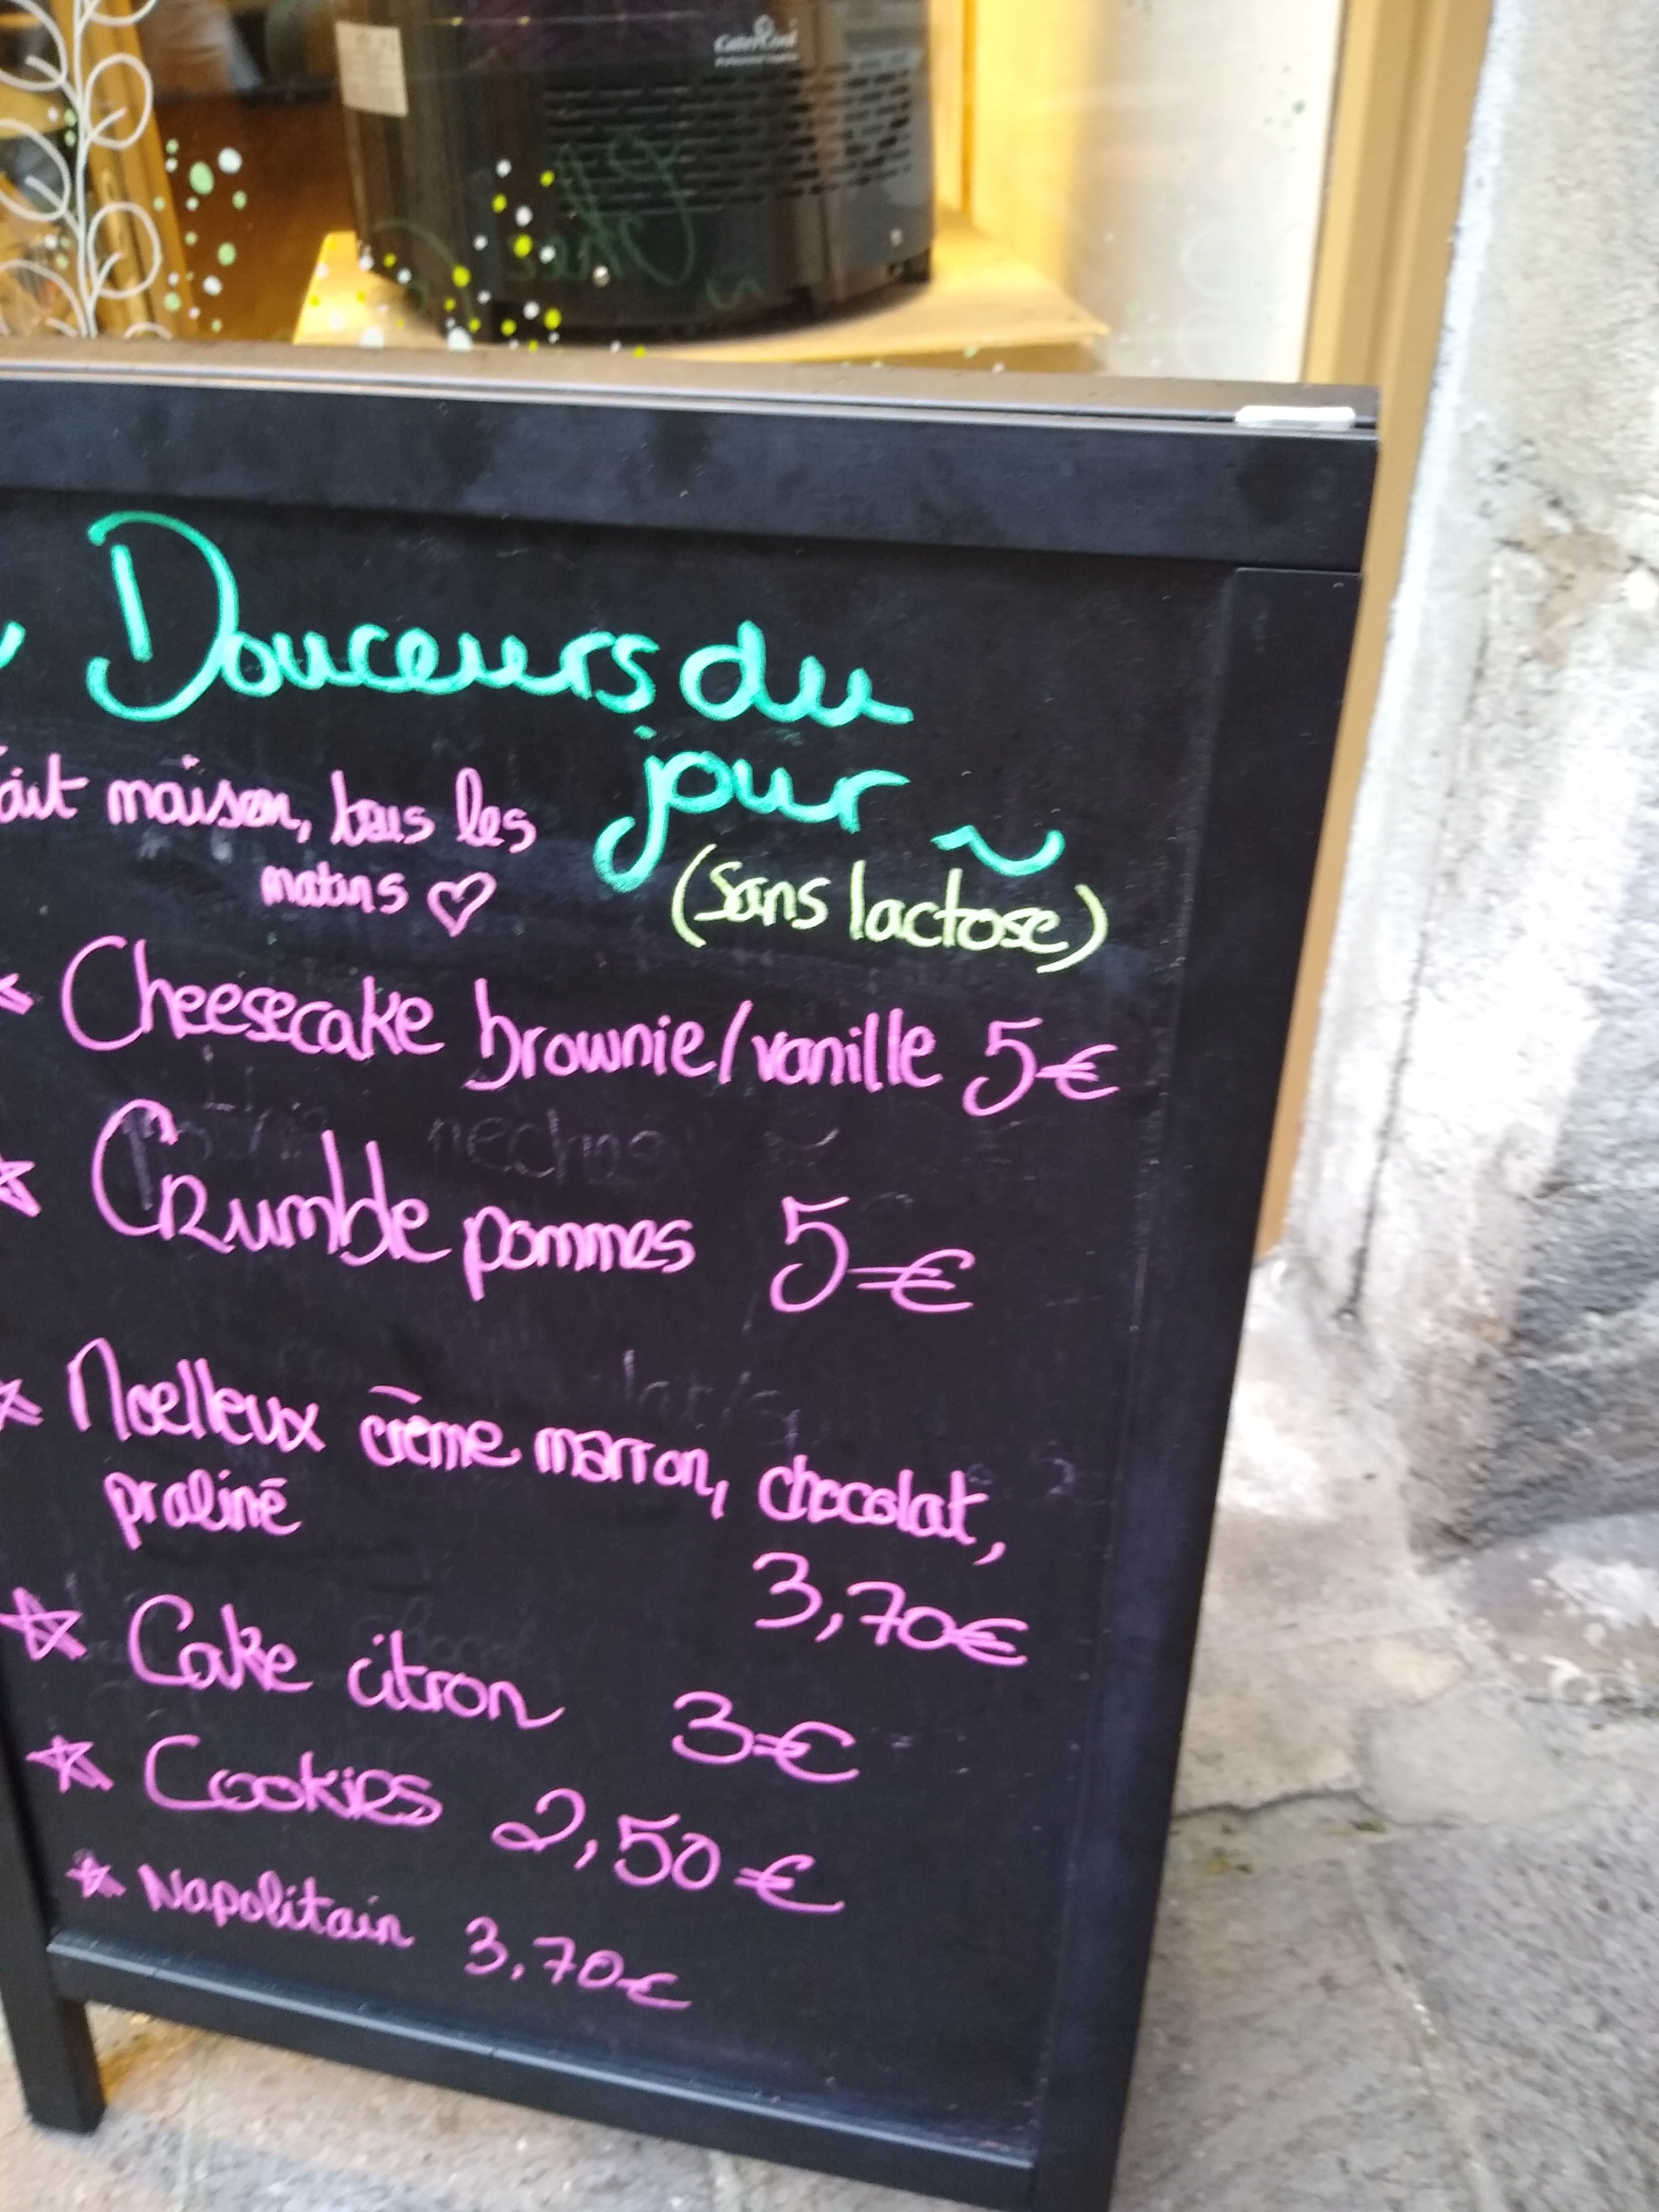 Douceurs du
jour ~
fait maison, tous les
matins ♡
(sans lactose)
Cheesecake brownie/vanille 5€
☆ Crumble pommes 5€
☆ Moelleux crème marron, chocolat,
praliné
3,70€
☆ Cake citron 3€
☆ Cookies 2,50€
☆ Napolitain 3,70€